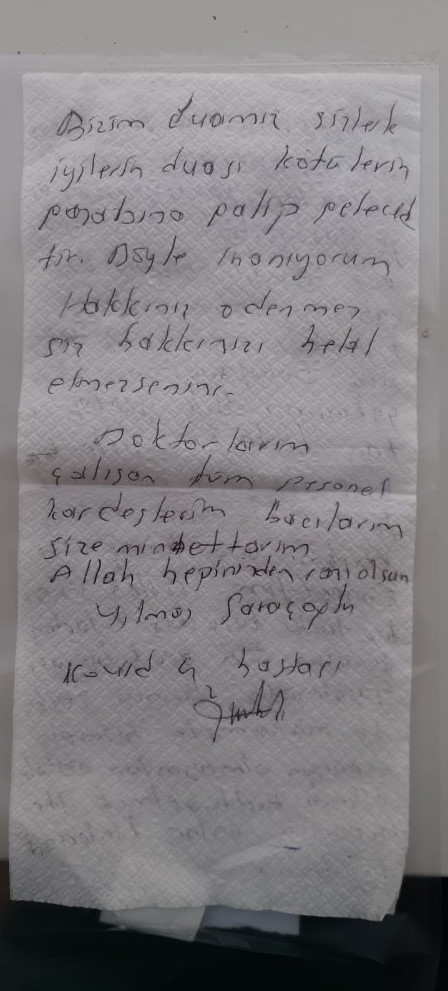 Bizim duamız sizlerle
iyilerin duası kötülerin
galip gelecek
tir. Böyle inanıyorum
Hakkınız ödenmez
siz hakkınızı helal
etmezseniz.
Doktorlarım
çalışan tüm prsonel
kardeşlerim bacılarım
size minnettarım
Allah hepinizden razı olsun
Yılmaz Saraçoğlu
Kovid hastası